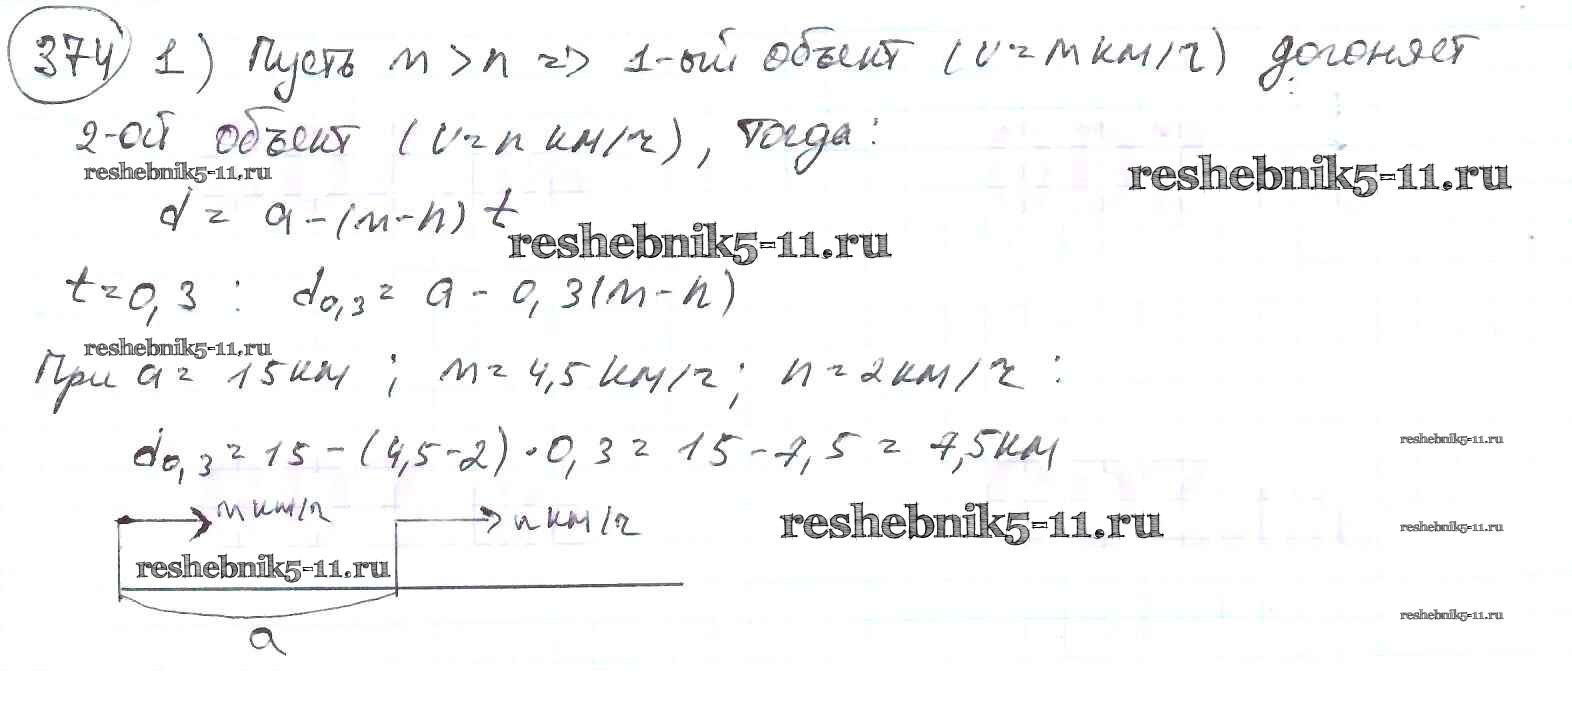 374 1) Пусть m > n => 1-ый объект (v = m км/ч) догоняет
2-ой объект (v = n км/ч), тогда:
reshebnik5-11.ru
reshebnik5-11.ru
d = a - (m - n) t
reshebnik5-11.ru
t = 0,3 : d0,3 = a - 0,3(m - n)
reshebnik5-11.ru
При a = 15 км ; m = 4,5 км/ч ; n = 2 км/ч :
d0,3 = 15 - (4,5 - 2) · 0,3 = 15 - 7,5 = 7,5 км
reshebnik5-11.ru
m км/ч
n км/ч
reshebnik5-11.ru
reshebnik5-11.ru
reshebnik5-11.ru
reshebnik5-11.ru
a